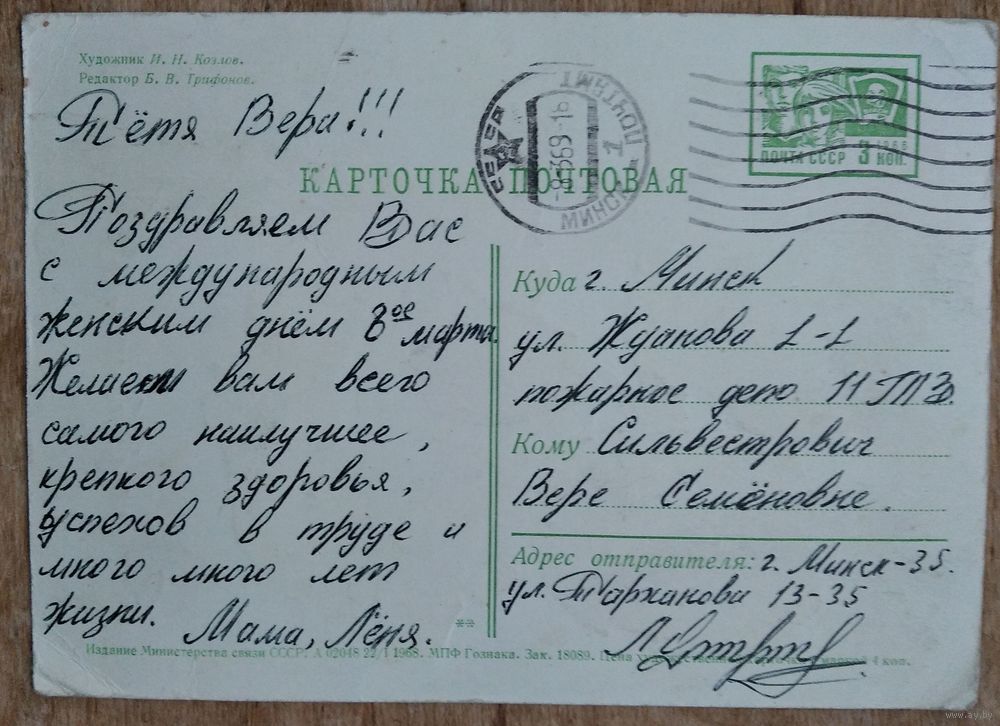 Художник И. Н. Козлов.
Редактор Б. В. Трифонов.
Тётя Вера!!!
КАРТОЧКА ПОЧТОВАЯ
ПОЧТА СССР 3 КОП.
1966
СССР
МИНСК
ПОЧТАМТ
1
Поздравляем Вас
с международным
женским днём 8ое марта.
Желаем вам всего
самого наилучшее,
крепкого здоровья,
успехов в труде и
много много лет
жизни.
Мама, Лёня.
Куда г. Минск
ул. Жданова 1-1
пожарное депо 11 ГПЗ
Кому Сильвестрович
Вере Семёновне.
Адрес отправителя: г. Минск-35.
ул. Тарханова 13-35
**
Издание Министерства связи СССР. А 02048 22/I 1968. МПФ Гознака. Зак. 18089. Цена 4 коп.
www.ay.by